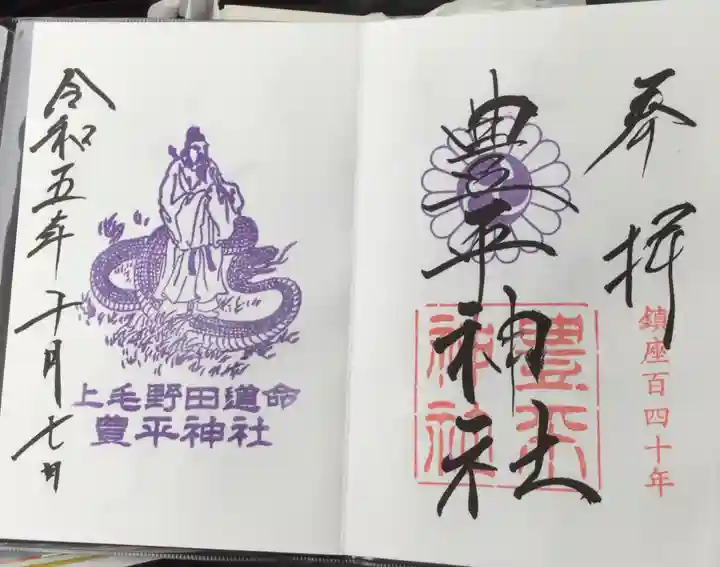 奉拝
鎮座百四十年
豊平神社
豊平神社
上毛野田道命
豊平神社
令和五年十月七日